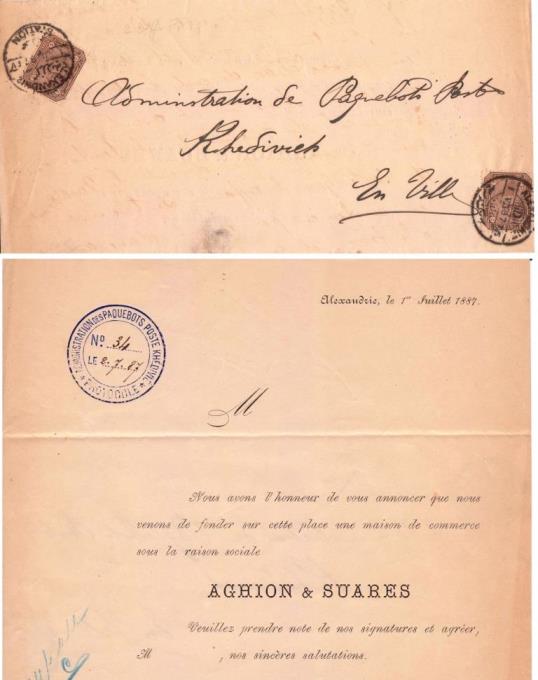 Adminstration de Paquebots Poste
Khedivieh
En Ville
ALEXANDRIE
STATION
Alexandrie, le 1er Juillet 1887.
ADMINISTRATION DES PAQUEBOTS POSTE KHÉDIVIE
No 34
LE 2.7.87
PROTOCOLE
M
Nous avons l'honneur de vous annoncer que nous
venons de fonder sur cette place une maison de commerce
sous la raison sociale
AGHION & SUARES
Veuillez prendre note de nos signatures et agréer,
M , nos sincères salutations.